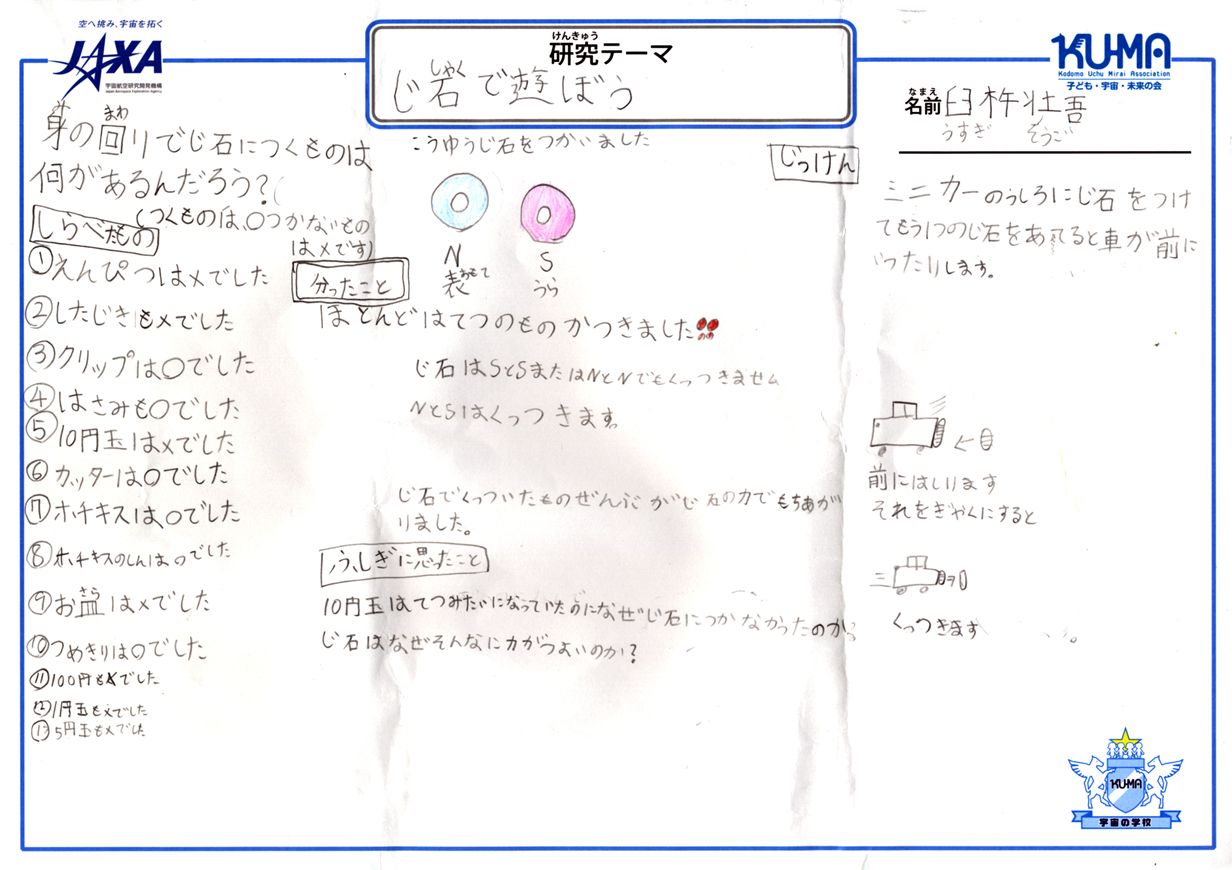 空へ挑み、宇宙を拓く
JAXA
宇宙航空研究開発機構
Japan Aerospace Exploration Agency
けんきゅう
研究テーマ
しゃく
じ石で遊ぼう
KU-MA
Kodomo Uchu Mirai Association
子ども・宇宙・未来の会
なまえ
名前 臼杵壮吾
うすぎ そうご
まわ
身の回りでじ石につくものは
何があるんだろう?
(つくものは、○つかないもの
は×です)
しらべもの
①えんぴつは×でした
②したじきも×でした
③クリップは○でした
④はさみも○でした
⑤10円玉は×でした
⑥カッターは○でした
⑦ホチキスは○でした
⑧ホチキスのしんは○でした
さら
⑨お皿は×でした
⑩つめきりは○でした
⑪100円も×でした
⑫1円玉も×でした
⑬5円玉も×でした
こうゆうじ石をつかいました
N
表おもて
S
うら
分ったこと
ほとんどはてつのものがつきました!!
じ石はSとSまたはNとNでもくっつきません
NとSはくっつきます。
じ石でくっついたものぜんぶがじ石の力でもちあが
りました。
ふしぎに思ったこと
10円玉はてつみたいになっていたのになぜじ石につかなかったのか。
じ石はなぜそんなに力がつよいのか?
じっけん
ミニカーのうしろにじ石をつけ
てもう1つのじ石をあてると車が前に
いったりします。
前にはしります
それをぎゃくにすると
くっつきます。
KU-MA
宇宙の学校